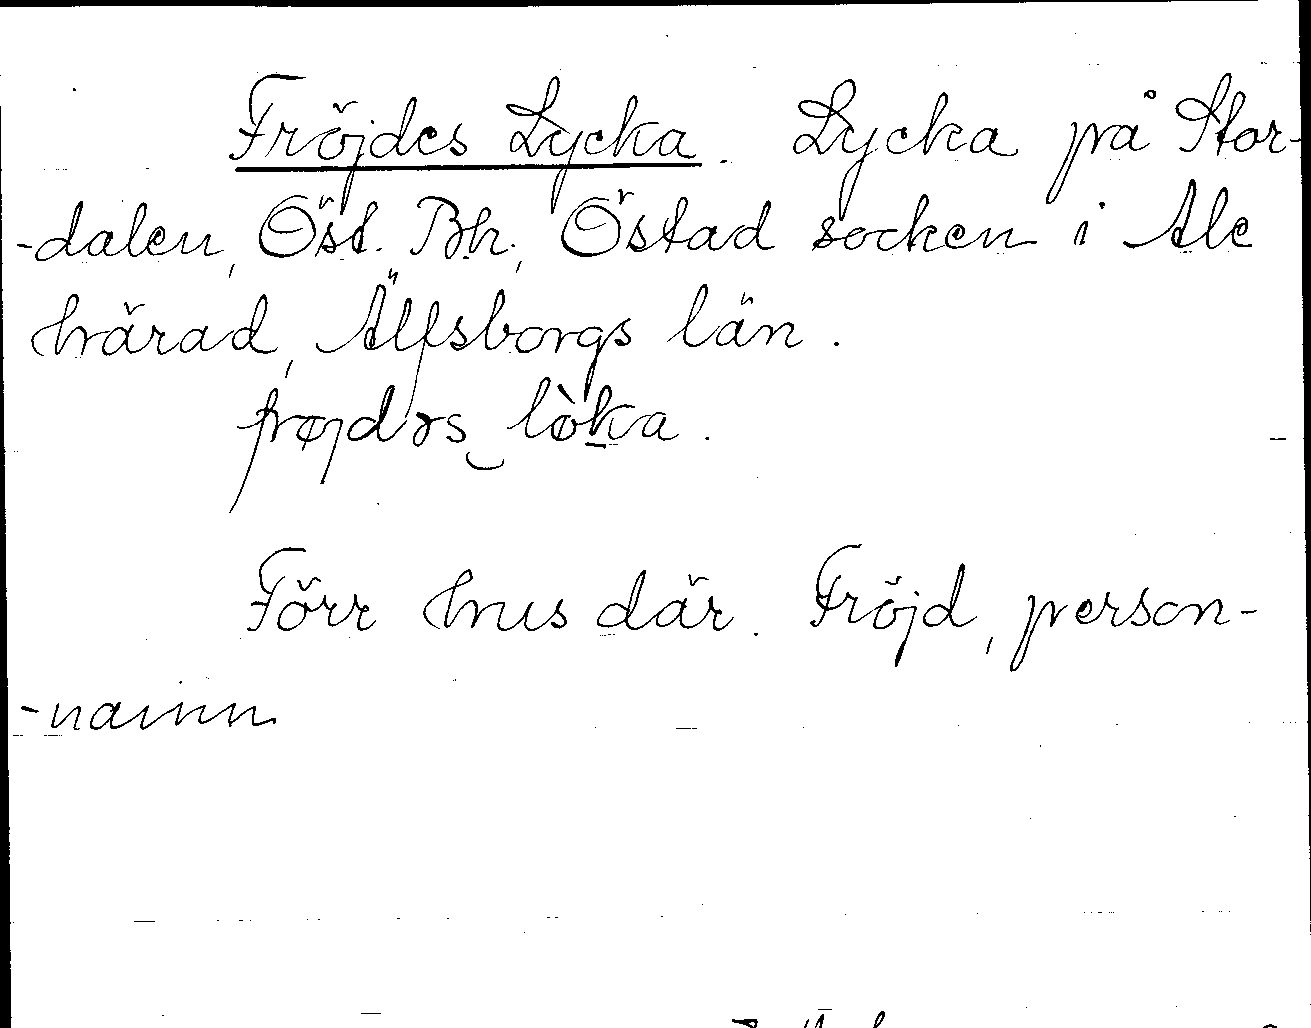 Fröjdes Lycka. Lycka på Stor-
-dalen, Öst. Bh., Östad socken i Ale
härad, Älfsborgs län.
frøjdəs‿lòka.
Förr hus där. Fröjd, person-
-namn